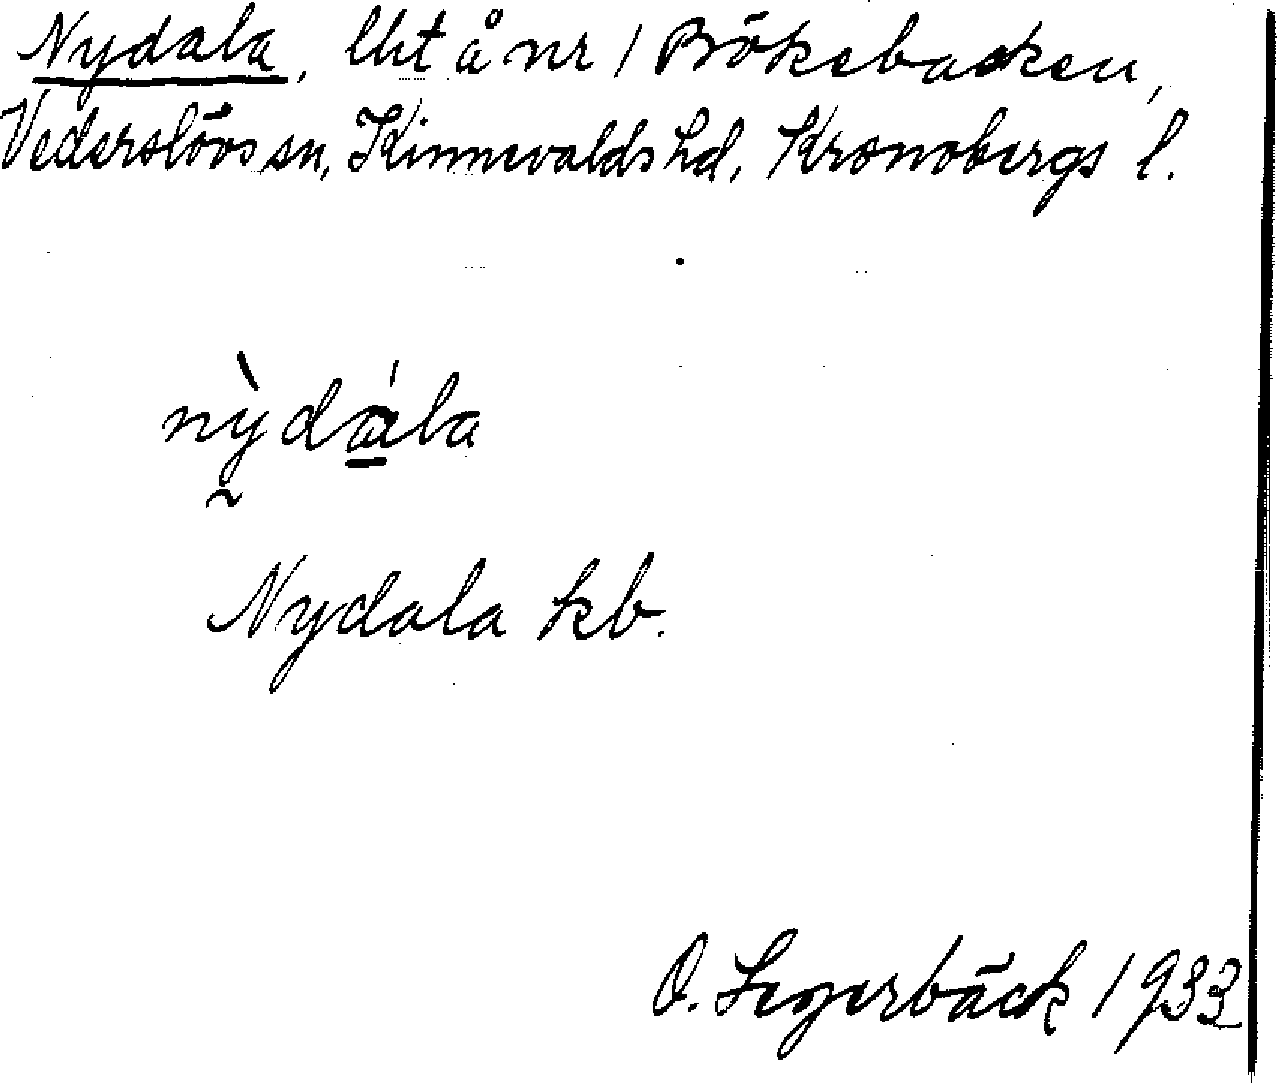 Nydala, lht å nr 1 Bökebacken,
Vederslövs sn, Kinnevalds hd, Kronobergs l.
nỳdála
Nydala kb.
O. Segerbäck 1933